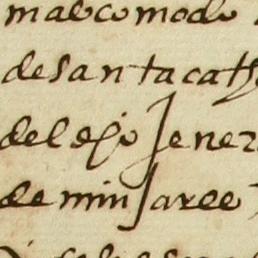 mas comodo
de santa cath
del dho Jener
de min Jaree